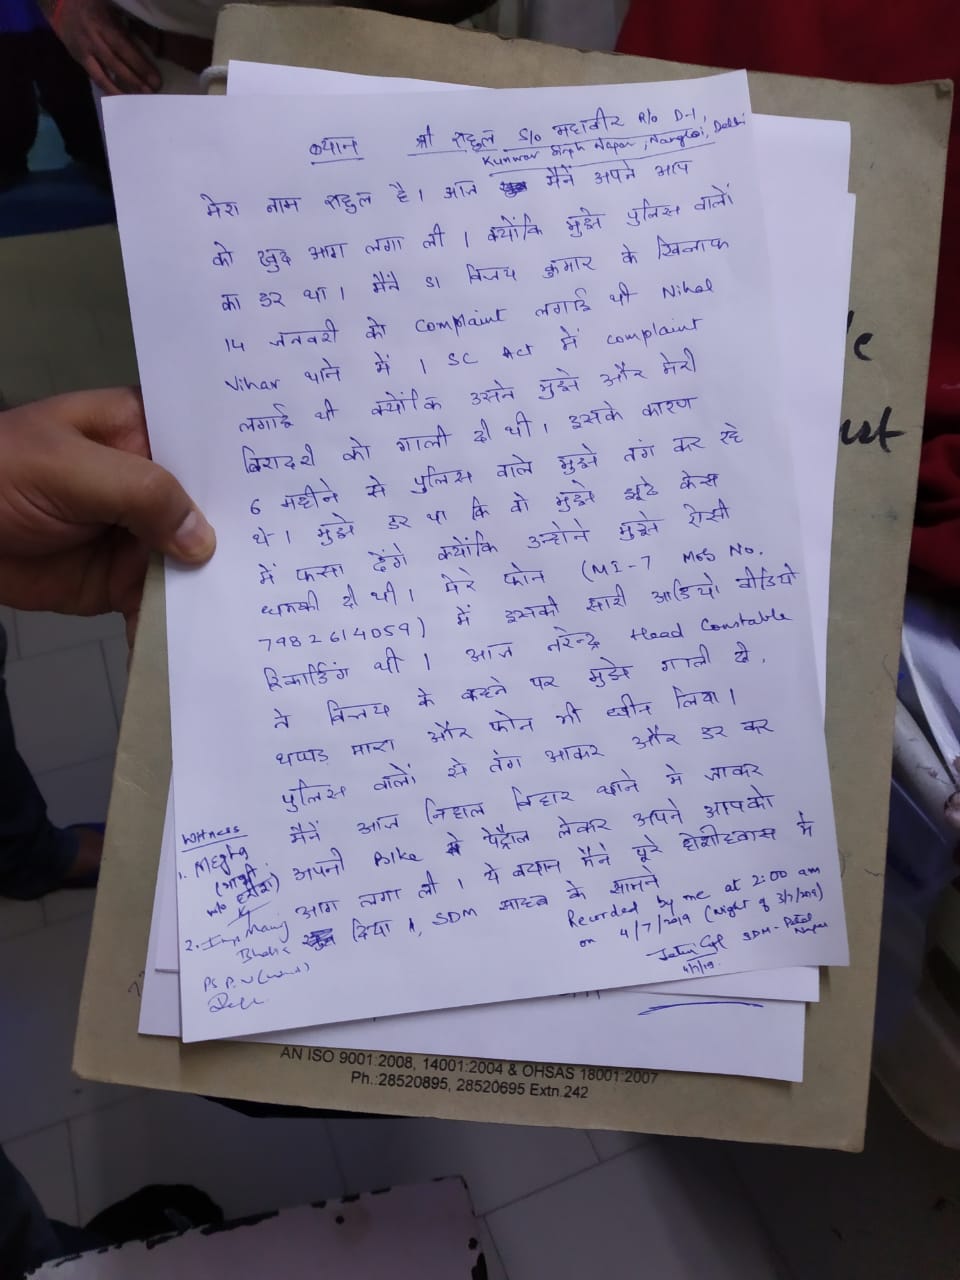 बयान श्री राहुल S/o महावीर R/o D-1,
Kunwar Singh Nagar, Nangloi, Delhi
मेरा नाम राहुल है। आज मैनें अपने आप
को खुद आग लगा ली। क्योंकि मुझे पुलिस वालों
का डर था। मैंने SI विजय कुमार के खिलाफ
14 जनवरी को Complaint लगाई थी Nihal
Vihar थाने में। SC Act में complaint
लगाई थी क्योंकि उसने मुझे और मेरी
बिरादरी को गाली दी थी। इसके कारण
6 महीने से पुलिस वाले मुझे तंग कर रहे
थे। मुझे डर था कि वो मुझे झूठे केस
में फसा देंगे क्योंकि उन्होने मुझे ऐसी
धमकी दी थी। मेरे फोन (MI-7 Mob No.
7982614059) में इसकी सारी आडियो वीडियो
रिकार्डिंग थी। आज नरेन्द्र Head Constable
ने विजय के कहने पर मुझे गाली दी,
थप्पड़ मारा और फोन भी छीन लिया।
पुलिस वालों से तंग आकर और डर कर
मैनें आज निहाल विहार थाने मे जाकर
अपनी Bike से पेट्रौल लेकर अपने आपको
आग लगा ली। ये बयान मैंने पूरे होशोहवास में
दिया, SDM साहब के सामने
Recorded by me at 2:00 am
on 4/7/2019 (Night of 3/7/2019)
SDM-Patel
Nagar
4/7/19.
Witness
1. Megha
(भाभी)
w/o
2.
AN ISO 9001:2008, 14001:2004 & OHSAS 18001:2007
Ph.:28520895, 28520695 Extn.242